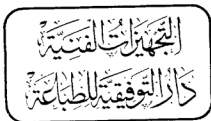 التَّجْهِيزَاتُ الْفَنِيَّة
دَارُ التَّوْفِيقِيَّةِ لِلطِّبَاعَةِ